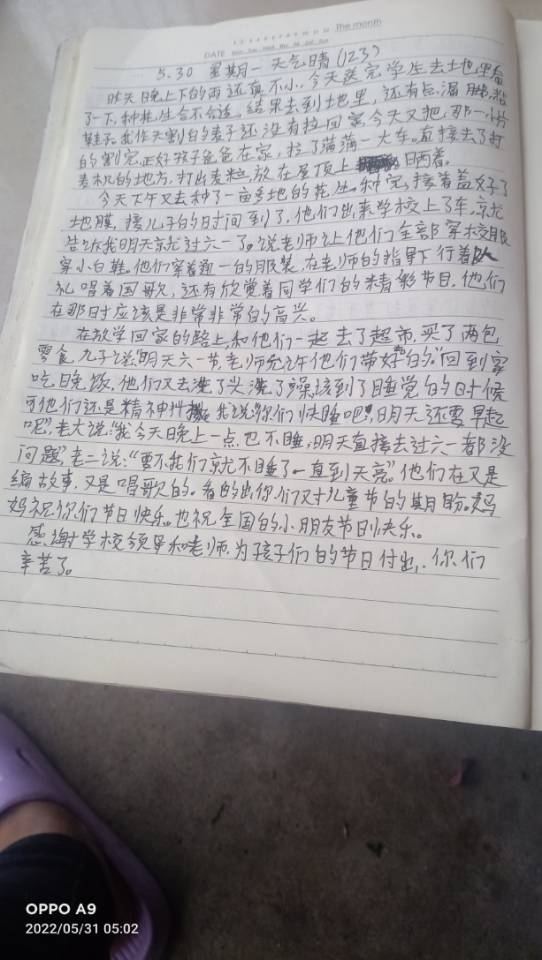 the month
DATE
5.30 星期一 天气晴(123)
昨天晚上下的雨还真不小,今天送完学生去地里看
了一下,种花生合不合适。结果去到地里,还有点湿 脚,粘
鞋子。我昨天割的麦子还没有拉回家,今天又把那一小片
的割完。正好孩子爸爸在家,拉了满满一大车。直接去了打
麦机的地方,打出麦粒,放在屋顶上 晒着。
今天下午又去种了一亩多地的花生。种完,接着盖好了
地膜,接儿子的时间到了,他们出来学校上了车,就
告诉我明天就过六一了。说老师让他们全部穿校服
穿小白鞋。他们穿着题一的服装,在老师的指导下行着队
礼唱着国歌,还有欣赏着同学们的精彩节目,他们
在那时应该是非常非常的高兴。
在放学回家的路上,和他们一起去了超市,买了两包
零食,儿子说:"明天六一节,老师允许他们带好的。"回到家
吃晚饭,他们又去洗了头洗了澡,该到了睡觉的时候
可他们还是精神抖擞 我说:"你们快睡吧!明天还要早起
呢"老大说:"我今天晚上一点也不睡,明天直接去过六一都没
问题"老二说:"要不我们就不睡了一直到天亮。"他们在又是
编故事,又是唱歌的。看的出你们对儿童节的期盼。妈
妈祝你们节日快乐。也祝全国的小朋友节日快乐。
感谢学校领导和老师,为孩子们的节日付出,.你们
辛苦了。
OPPO A9
2022/05/31 05:02